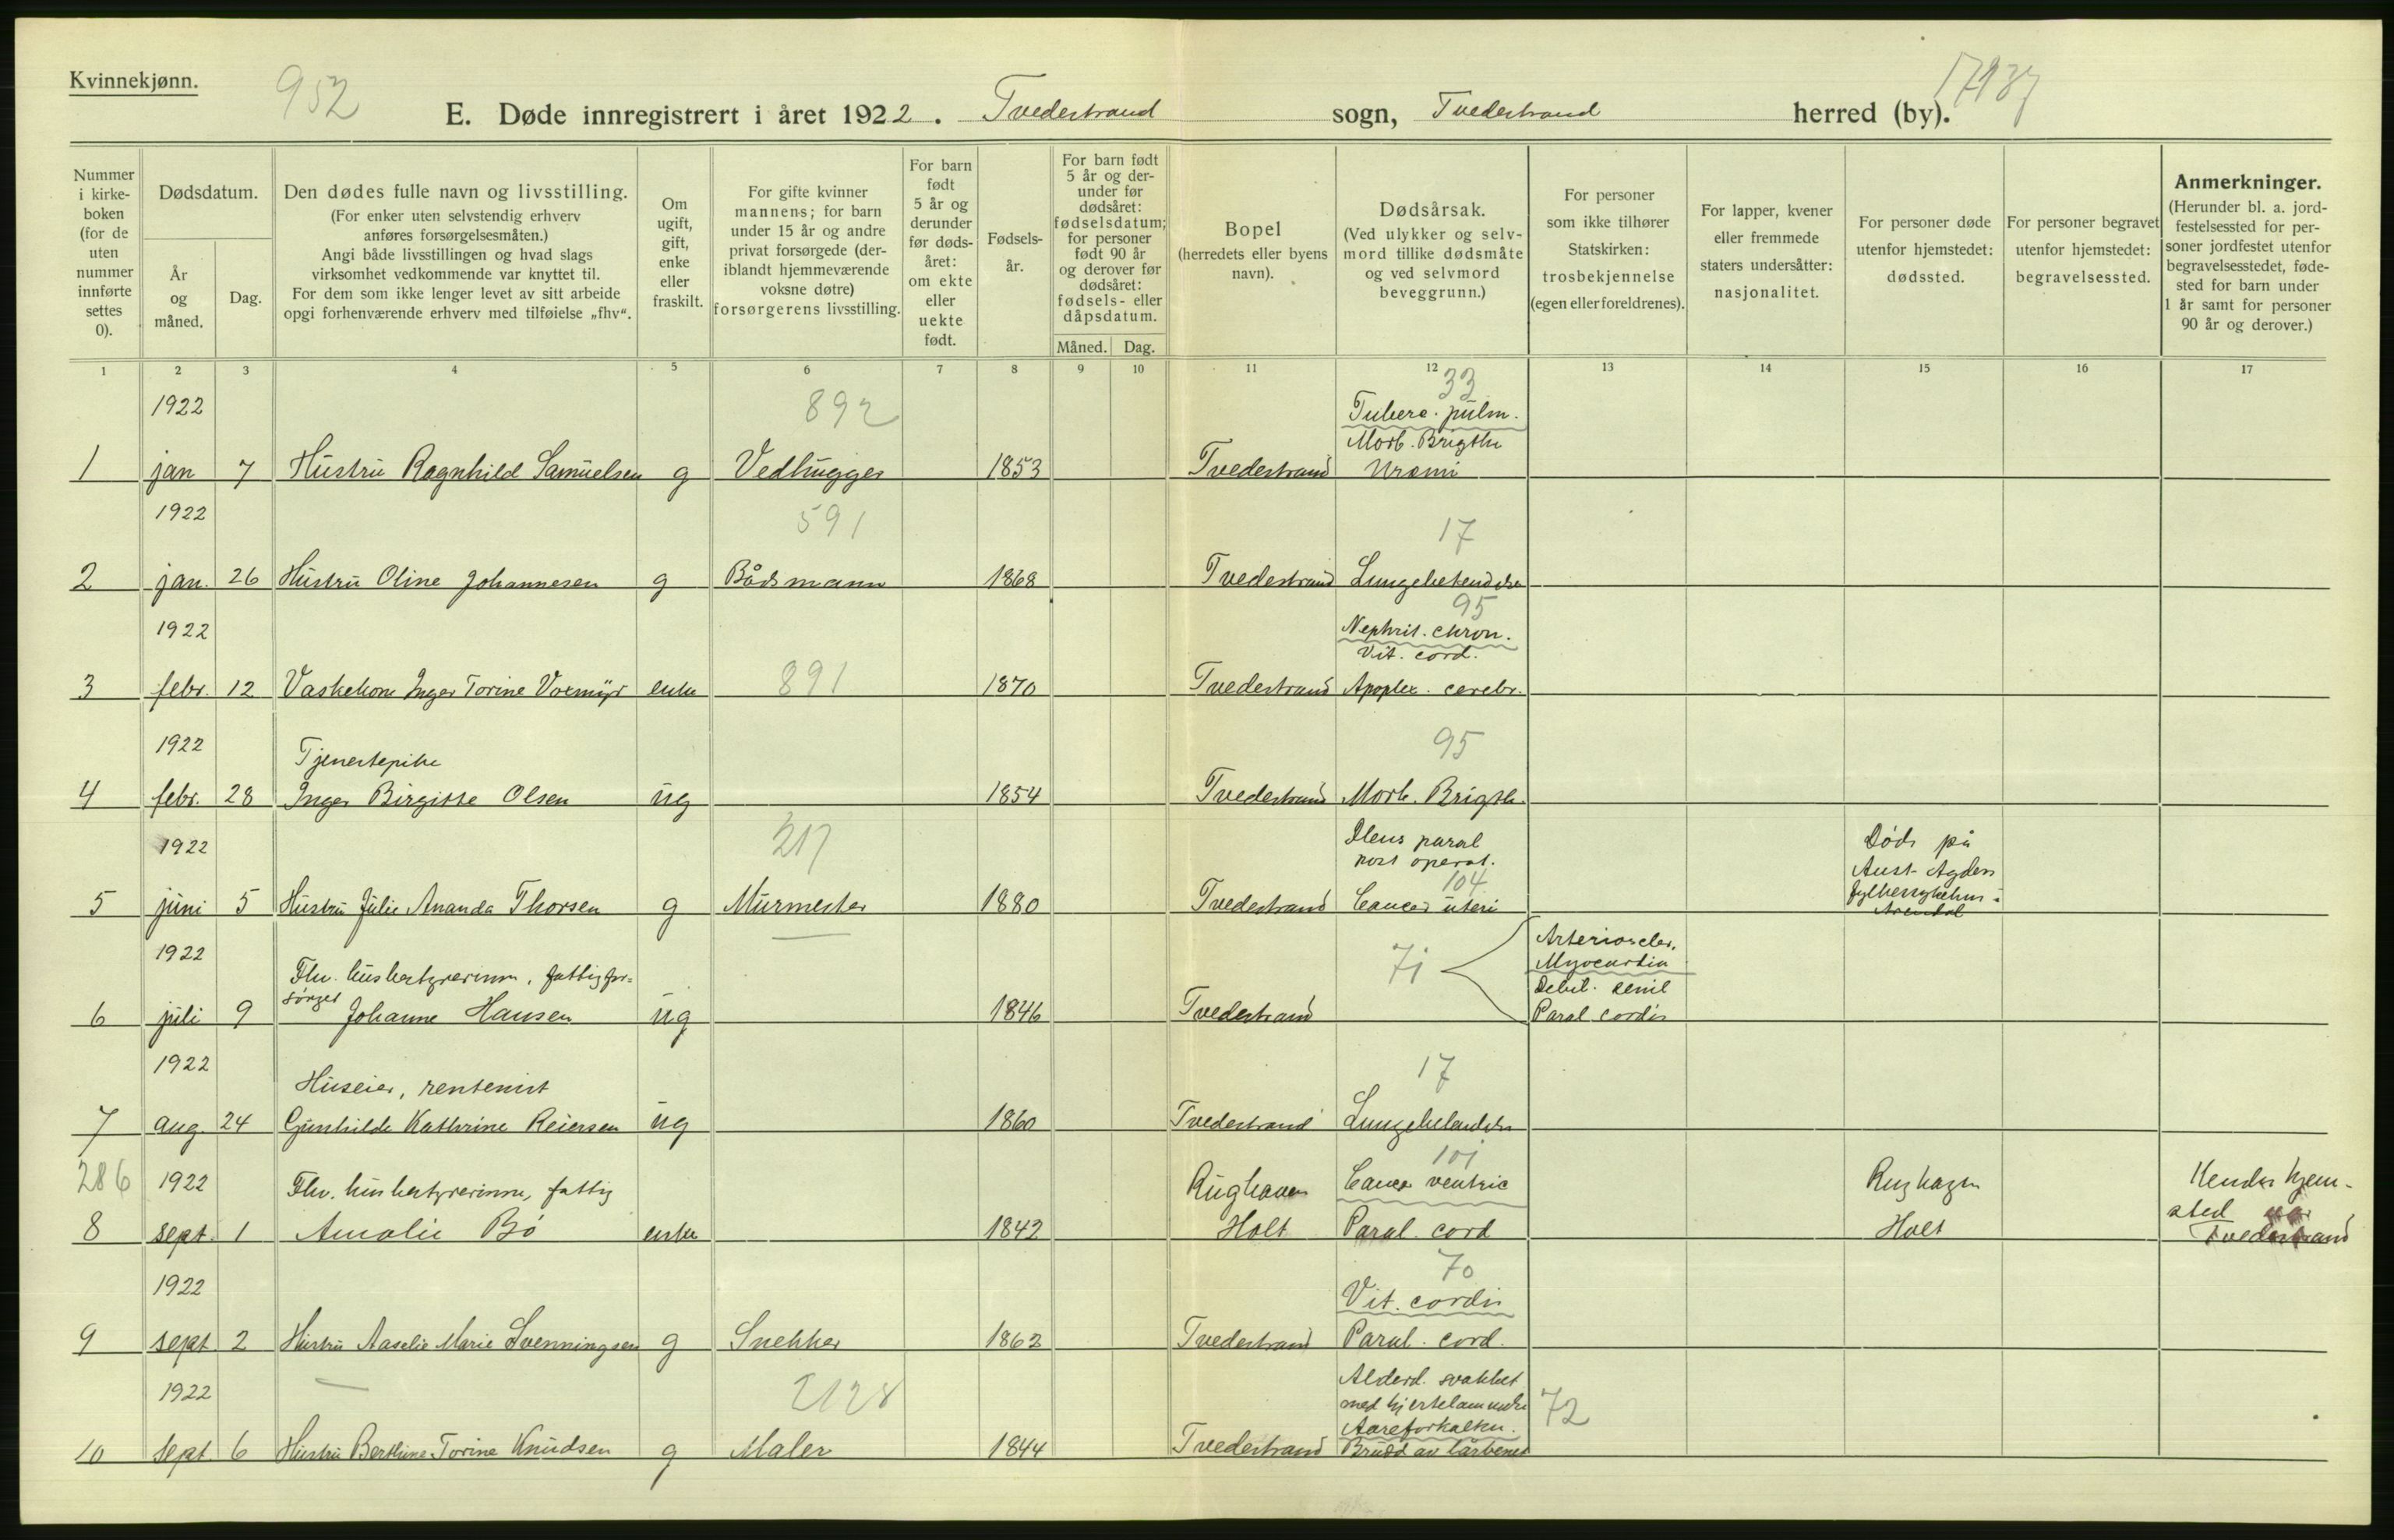 Kvinnekjønn.
952
17937
E. Døde innregistrert i året 1922. Tvedestrand sogn, Tvedestrand herred (by).
Nummer
i kirke-
boken
(for de
uten
nummer
innførte
settes
0).
Dødsdatum.
År
og
måned.
Dag.
Den dødes fulle navn og livsstilling.
(For enker uten selvstendig erhverv
anføres forsørgelsesmåten.)
Angi både livsstillingen og hvad slags
virksomhet vedkommende var knyttet til.
For dem som ikke lenger levet av sitt arbeide
opgi forhenværende erhverv med tilføielse „fhv“.
Om
ugift,
gift,
enke
eller
fraskilt.
For gifte kvinner
mannens; for barn
under 15 år og andre
privat forsørgede (der-
iblandt hjemmeværende
voksne døtre)
forsørgerens livsstilling.
For barn
født
5 år og
derunder
før døds-
året:
om ekte
eller
uekte
født.
Fødsels-
år.
For barn født
5 år og der-
under før
dødsåret:
fødselsdatum;
for personer
født 90 år
og derover før
dødsåret:
fødsels- eller
dåpsdatum.
Måned. Dag.
Bopel
(herredets eller byens
navn).
Dødsårsak.
(Ved ulykker og selv-
mord tillike dødsmåte
og ved selvmord
beveggrunn.)
For personer
som ikke tilhører
Statskirken:
trosbekjennelse
(egen eller foreldrenes).
For lapper, kvener
eller fremmede
staters undersåtter:
nasjonalitet.
For personer døde
utenfor hjemstedet:
dødssted.
For personer begravet
utenfor hjemstedet:
begravelsessted.
Anmerkninger.
(Herunder bl. a. jord-
festelsessted for per-
soner jordfestet utenfor
begravelsesstedet, føde-
sted for barn under
1 år samt for personer
90 år og derover.)
1 2 3 4 5 6 7 8 9 10 11 12 13 14 15 16 17
1922 892 33
Tuberc. pulm.
Morb. Brigthi
1 jan 7 Hustru Ragnhild Samuelsen g Vedhugger 1853 Tvedestrand Uræmi
1922 591 17
2 jan. 26 Hustru Oline Johannesen g Båtsmann 1868 Tvedestrand Lungebetendelse
95
1922 Nephrit. chron.
Vit. cord.
3 febr. 12 Vaskekone Inger Torine Voxmyr enke 891 1870 Tvedestrand Apoplex. cerebr.
1922 Tjenestepike 95
4 febr. 28 Inger Birgitte Olsen ug 1854 Tvedestrand Morb. Brigth.
1922 317 Ileus paral Død på
post operat. Aust-Agder
104 fylkessykehus i
5 juni 5 Hustru Julie Ananda Thorsen g Murmester 1880 Tvedestrand Cancer uteri Arendal
1922 Arterioscler.
Fhv. husbestyrerinne, fattigfor- 71 Myocardia
sørget Debil. senil
6 juli 9 Johanne Hansen ug 1846 Tvedestrand Paral cordis
1922 Huseier, rentenist 17
7 aug. 24 Gunhilde Kathrine Reiersen ug 1860 Tvedestrand Lungebetendelse
101
286 1922 Fhv. husbestyrerinne, fattig Rughaven Cancer ventric Rughagen Hendes hjem-
sted var
8 sept. 1 Amalie Bö enke 1842 Holt Paral. cord Holt Tvedestrand
70
1922 Vit. cordis
9 sept. 2 Hustru Aaselie Marie Svenningsen g Snekker 1862 Tvedestrand Paral. cord.
1922 2128 Alderd. svakhet
med hjertelammelse 72
Aareforkalkn.
10 sept. 6 Hustru Berthine Torine Knudsen g Maler 1844 Tvedestrand Brudd av lårbenet